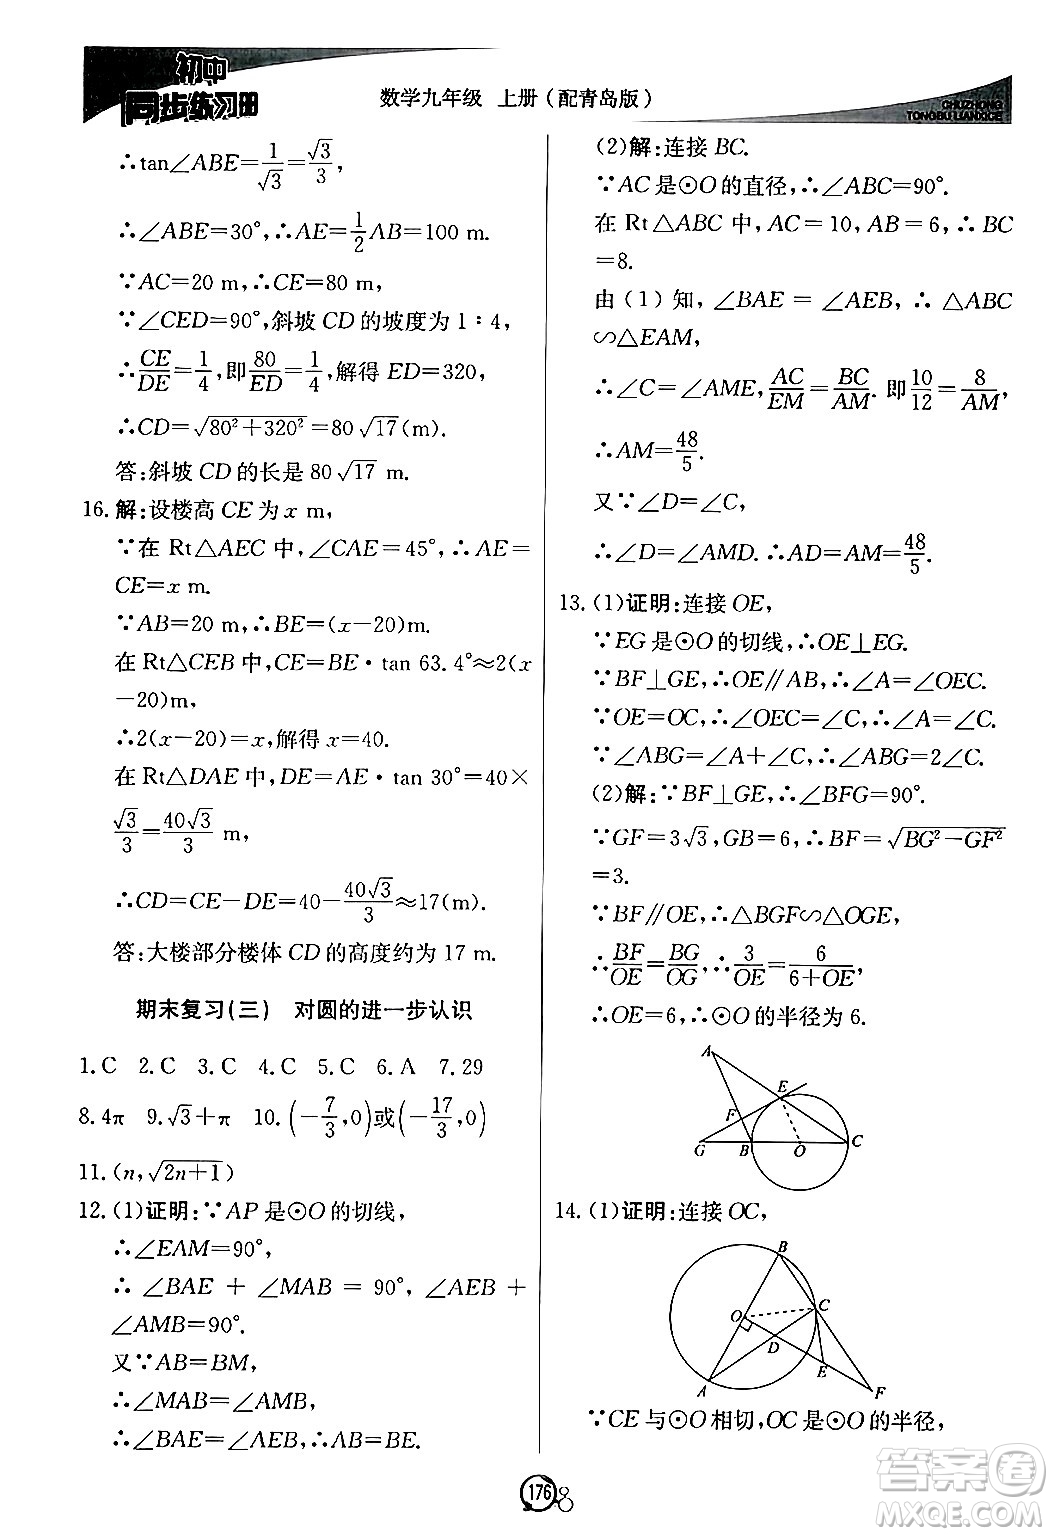 初中
同步练习册
数学九年级 上册(配青岛版)
CHUZHONG
TONGBU LIANXICE
∴tan∠ABE=1/√3=√3/3,
∴∠ABE=30°,∴AE=1/2AB=100 m.
∵AC=20 m,∴CE=80 m.
∵∠CED=90°,斜坡 CD 的坡度为 1∶4,
∴CE/DE=1/4,即80/ED=1/4,解得 ED=320,
∴CD=√(80²+320²)=80√17(m).
答:斜坡 CD 的长是 80√17 m.
16.解:设楼高 CE 为 x m,
∵在 Rt△AEC 中,∠CAE=45°,∴AE=
CE=x m.
∵AB=20 m,∴BE=(x-20)m.
在 Rt△CEB 中,CE=BE·tan 63.4°≈2(x
-20)m,
∴2(x-20)=x,解得 x=40.
在 Rt△DAE 中,DE=AE·tan 30°=40×
√3/3=40√3/3 m,
∴CD=CE-DE=40-40√3/3≈17(m).
答:大楼部分楼体 CD 的高度约为 17 m.
期末复习(三) 对圆的进一步认识
1.C 2.C 3.C 4.C 5.C 6.A 7.29
8.4π 9.√3+π 10.(-7/3,0)或(-17/3,0)
11.(n,√(2n+1))
12.(1)证明:∵AP 是⊙O 的切线,
∴∠EAM=90°,
∴∠BAE+∠MAB=90°,∠AEB+
∠AMB=90°.
又∵AB=BM,
∴∠MAB=∠AMB,
∴∠BAE=∠AEB,∴AB=BE.
(2)解:连接 BC.
∵AC 是⊙O 的直径,∴∠ABC=90°.
在 Rt△ABC 中,AC=10,AB=6,∴BC
=8.
由(1)知,∠BAE=∠AEB,∴△ABC
∽△EAM,
∴∠C=∠AME,AC/EM=BC/AM.即10/12=8/AM,
∴AM=48/5.
又∵∠D=∠C,
∴∠D=∠AMD.∴AD=AM=48/5.
13.(1)证明:连接 OE,
∵EG 是⊙O 的切线,∴OE⊥EG.
∵BF⊥GE,∴OE∥AB,∴∠A=∠OEC.
∵OE=OC,∴∠OEC=∠C,∴∠A=∠C.
∵∠ABG=∠A+∠C,∴∠ABG=2∠C.
(2)解:∵BF⊥GE,∴∠BFG=90°.
∵GF=3√3,GB=6,∴BF=√(BG²-GF²)
=3.
∵BF∥OE,∴△BGF∽△OGE,
∴BF/OE=BG/OG,∴3/OE=6/(6+OE),
∴OE=6,∴⊙O 的半径为 6.
A
E
F
G B O C
14.(1)证明:连接 OC,
B
O C
D
E
A
F
∵CE 与⊙O 相切,OC 是⊙O 的半径,
176
答案卷
MXQE.COM